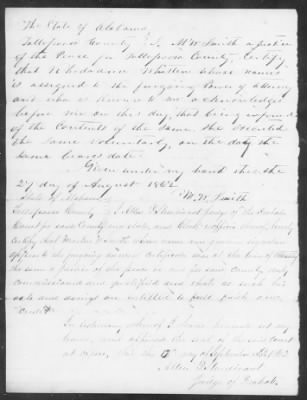 The State of Alabama
Tallapoosa County } I, M W Smith a Justice
of the Peace for Tallapoosa County, Certify
that Whose name
is assigned to the foregoing Power of attorney
and who is known to me acknowledged
before me on this day, that being informed
of the Contents of the same, she executed
the same voluntarily, on the day the
same bears date.
Given under my hand this the
27 day of August 1862
M. W. Smith
State of Alabama
Tallapoosa County } I, Allen D. Sturdivant Judge of the Probate
Court for said County and State, and Clerk
Certify that Smith whose name and genuine signature
to the foregoing certificate was at the time of
the same a Justice of the peace in and for said County duly
commissioned and qualified and that as such his
acts and doings are entitled to full faith and
Credit
In testimony whereof I have hereunto set my
hand, and affixed the seal of the said Court
at office, this the day of September AD 1862
Allen D. Sturdivant
Judge of Probate